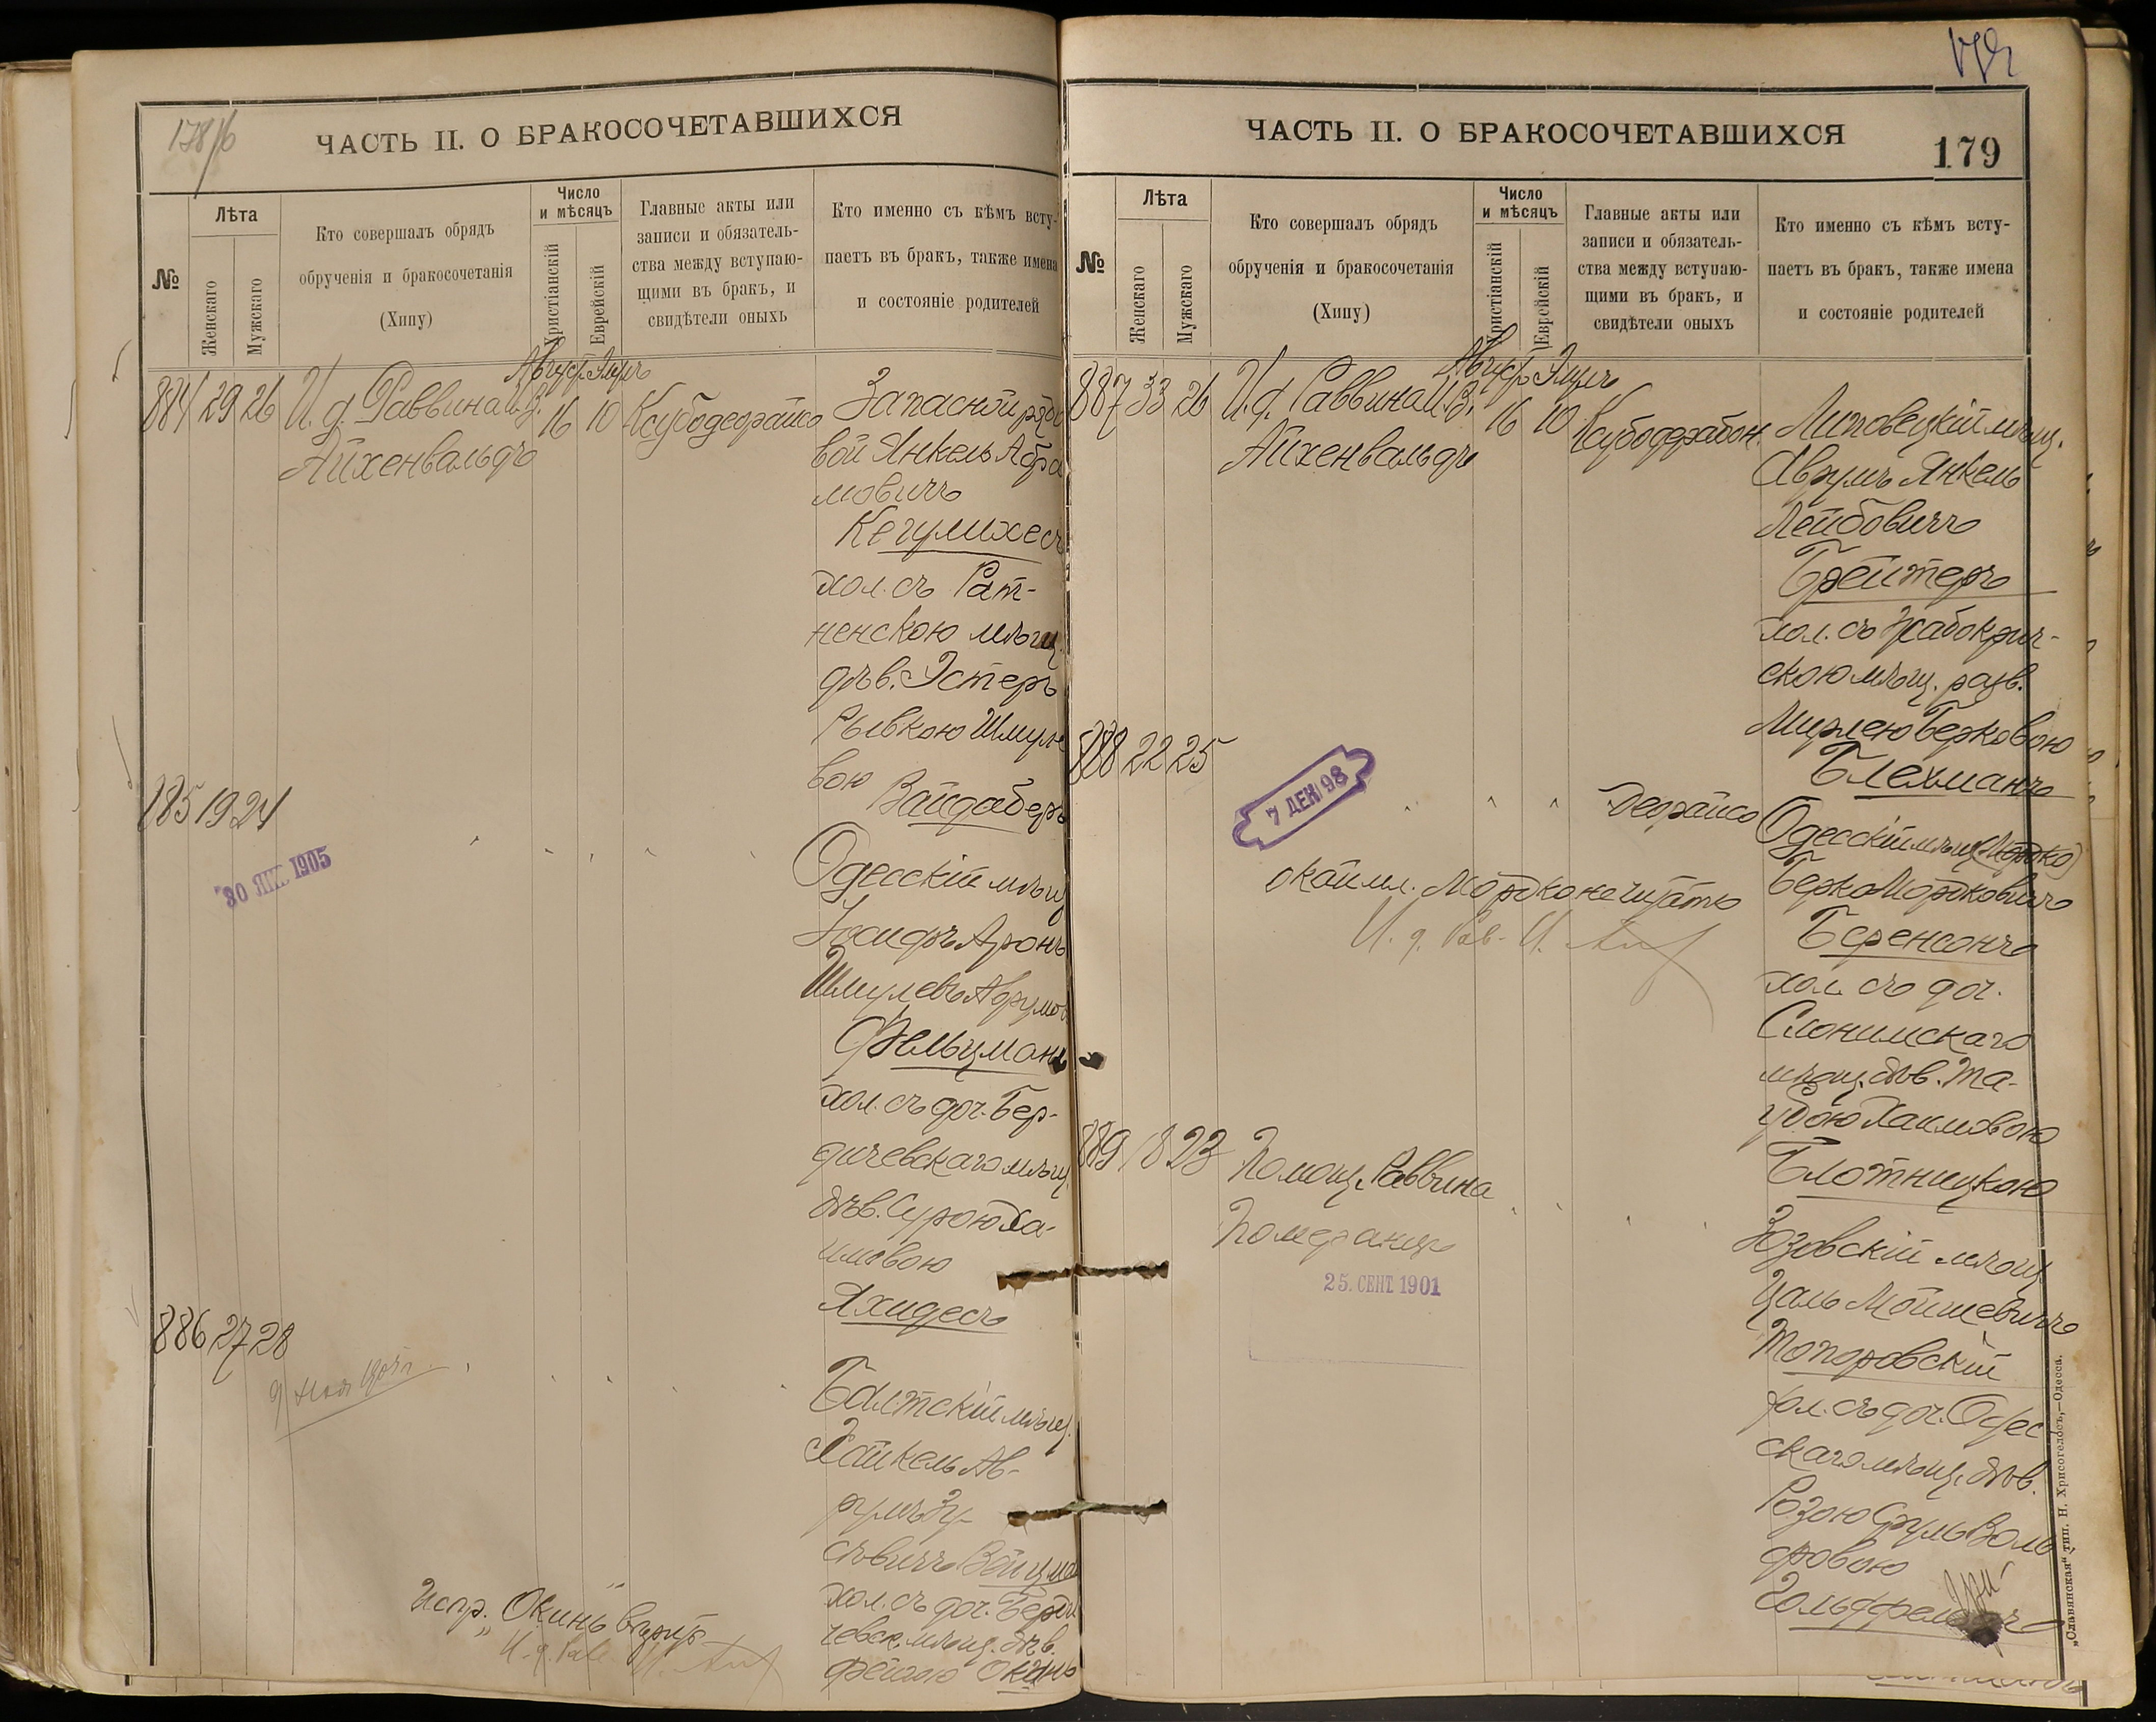 178/б
ЧАСТЬ II. О БРАКОСОЧЕТАВШИХСЯ
№
Лѣта
Женскаго
Мужскаго
Кто совершалъ обрядъ
обрученія и бракосочетанія
(Хипу)
Число
и мѣсяцъ
Христіанскій
Еврейскій
Главные акты или
записи и обязатель-
ства между вступаю-
щими въ бракъ, и
свидѣтели оныхъ
Кто именно съ кѣмъ всту-
паетъ въ бракъ, также имена
и состояніе родителей
884 29 26 И. д. Раввина И. З.
Айхенвальдъ
Август. Элулъ
16 10 Ксубодеорайсо
Запасной рядо
вой Янкель Абра
мовичъ
Кегулихесъ
хол. съ Рат-
ненскою мѣщ.
дѣв. Эстеръ
Рывкою Шмуле
вою
Вайдаберъ
885 19 24
30 ЯНВ. 1905
Одесскій мѣщ
Іосифъ Аронъ
Шмулевъ Аврумов
Фельцманъ
хол. съ доч. Бер-
дичевскаго мѣщ.
дѣв. Сурою Ха-
имовою
Яхидесъ
886 27 28
Балтскій мѣщ.
Хайкель Ав-
румъ Зу-
съвичъ Войцма
хол. съ доч. Берди
чевск. мѣщ. дѣв.
Фейгою Окинь
Испр. „Окинь" вѣрить
И. д. Рав. И.
ЧАСТЬ II. О БРАКОСОЧЕТАВШИХСЯ
179
№
Лѣта
Женскаго
Мужскаго
Кто совершалъ обрядъ
обрученія и бракосочетанія
(Хипу)
Число
и мѣсяцъ
Христіанскій
Еврейскій
Главные акты или
записи и обязатель-
ства между вступаю-
щими въ бракъ, и
свидѣтели оныхъ
Кто именно съ кѣмъ всту-
паетъ въ бракъ, также имена
и состояніе родителей
887 33 26 И. д. Раввина И. З.
Айхенвальдъ
Август. Элулъ
16 10
Липовецкій мѣщ.
Аврумъ Янкель
Лейбовичъ
Брейтеръ
хол. съ Жабокрич-
скою мѣщ. разв.
Мирлею Берковою
Блехманъ
888 22 25
7 ДЕК 98
Деорайсо
Одесскій мѣщ (Мортко)
Берко Мортковичъ
Беренсонъ
хол. съ доч.
Слонимскаго
мѣщ. дѣв. Та-
убою Хаимовою
Блотницкою
окайм. Мортко не читать
И. д. Рав. И.
889 18 23 Помощ. Раввина
Померанцъ
25. СЕНТ. 1901
Юзовскій мѣщ
Цаль Мойшевичъ
Топоровскій
хол. съ доч. Одес
скаго мѣщ. дѣв.
Розою Сруль Воль
фовою
„Славянская" тип. Н. Хрисогелосъ,—Одесса.